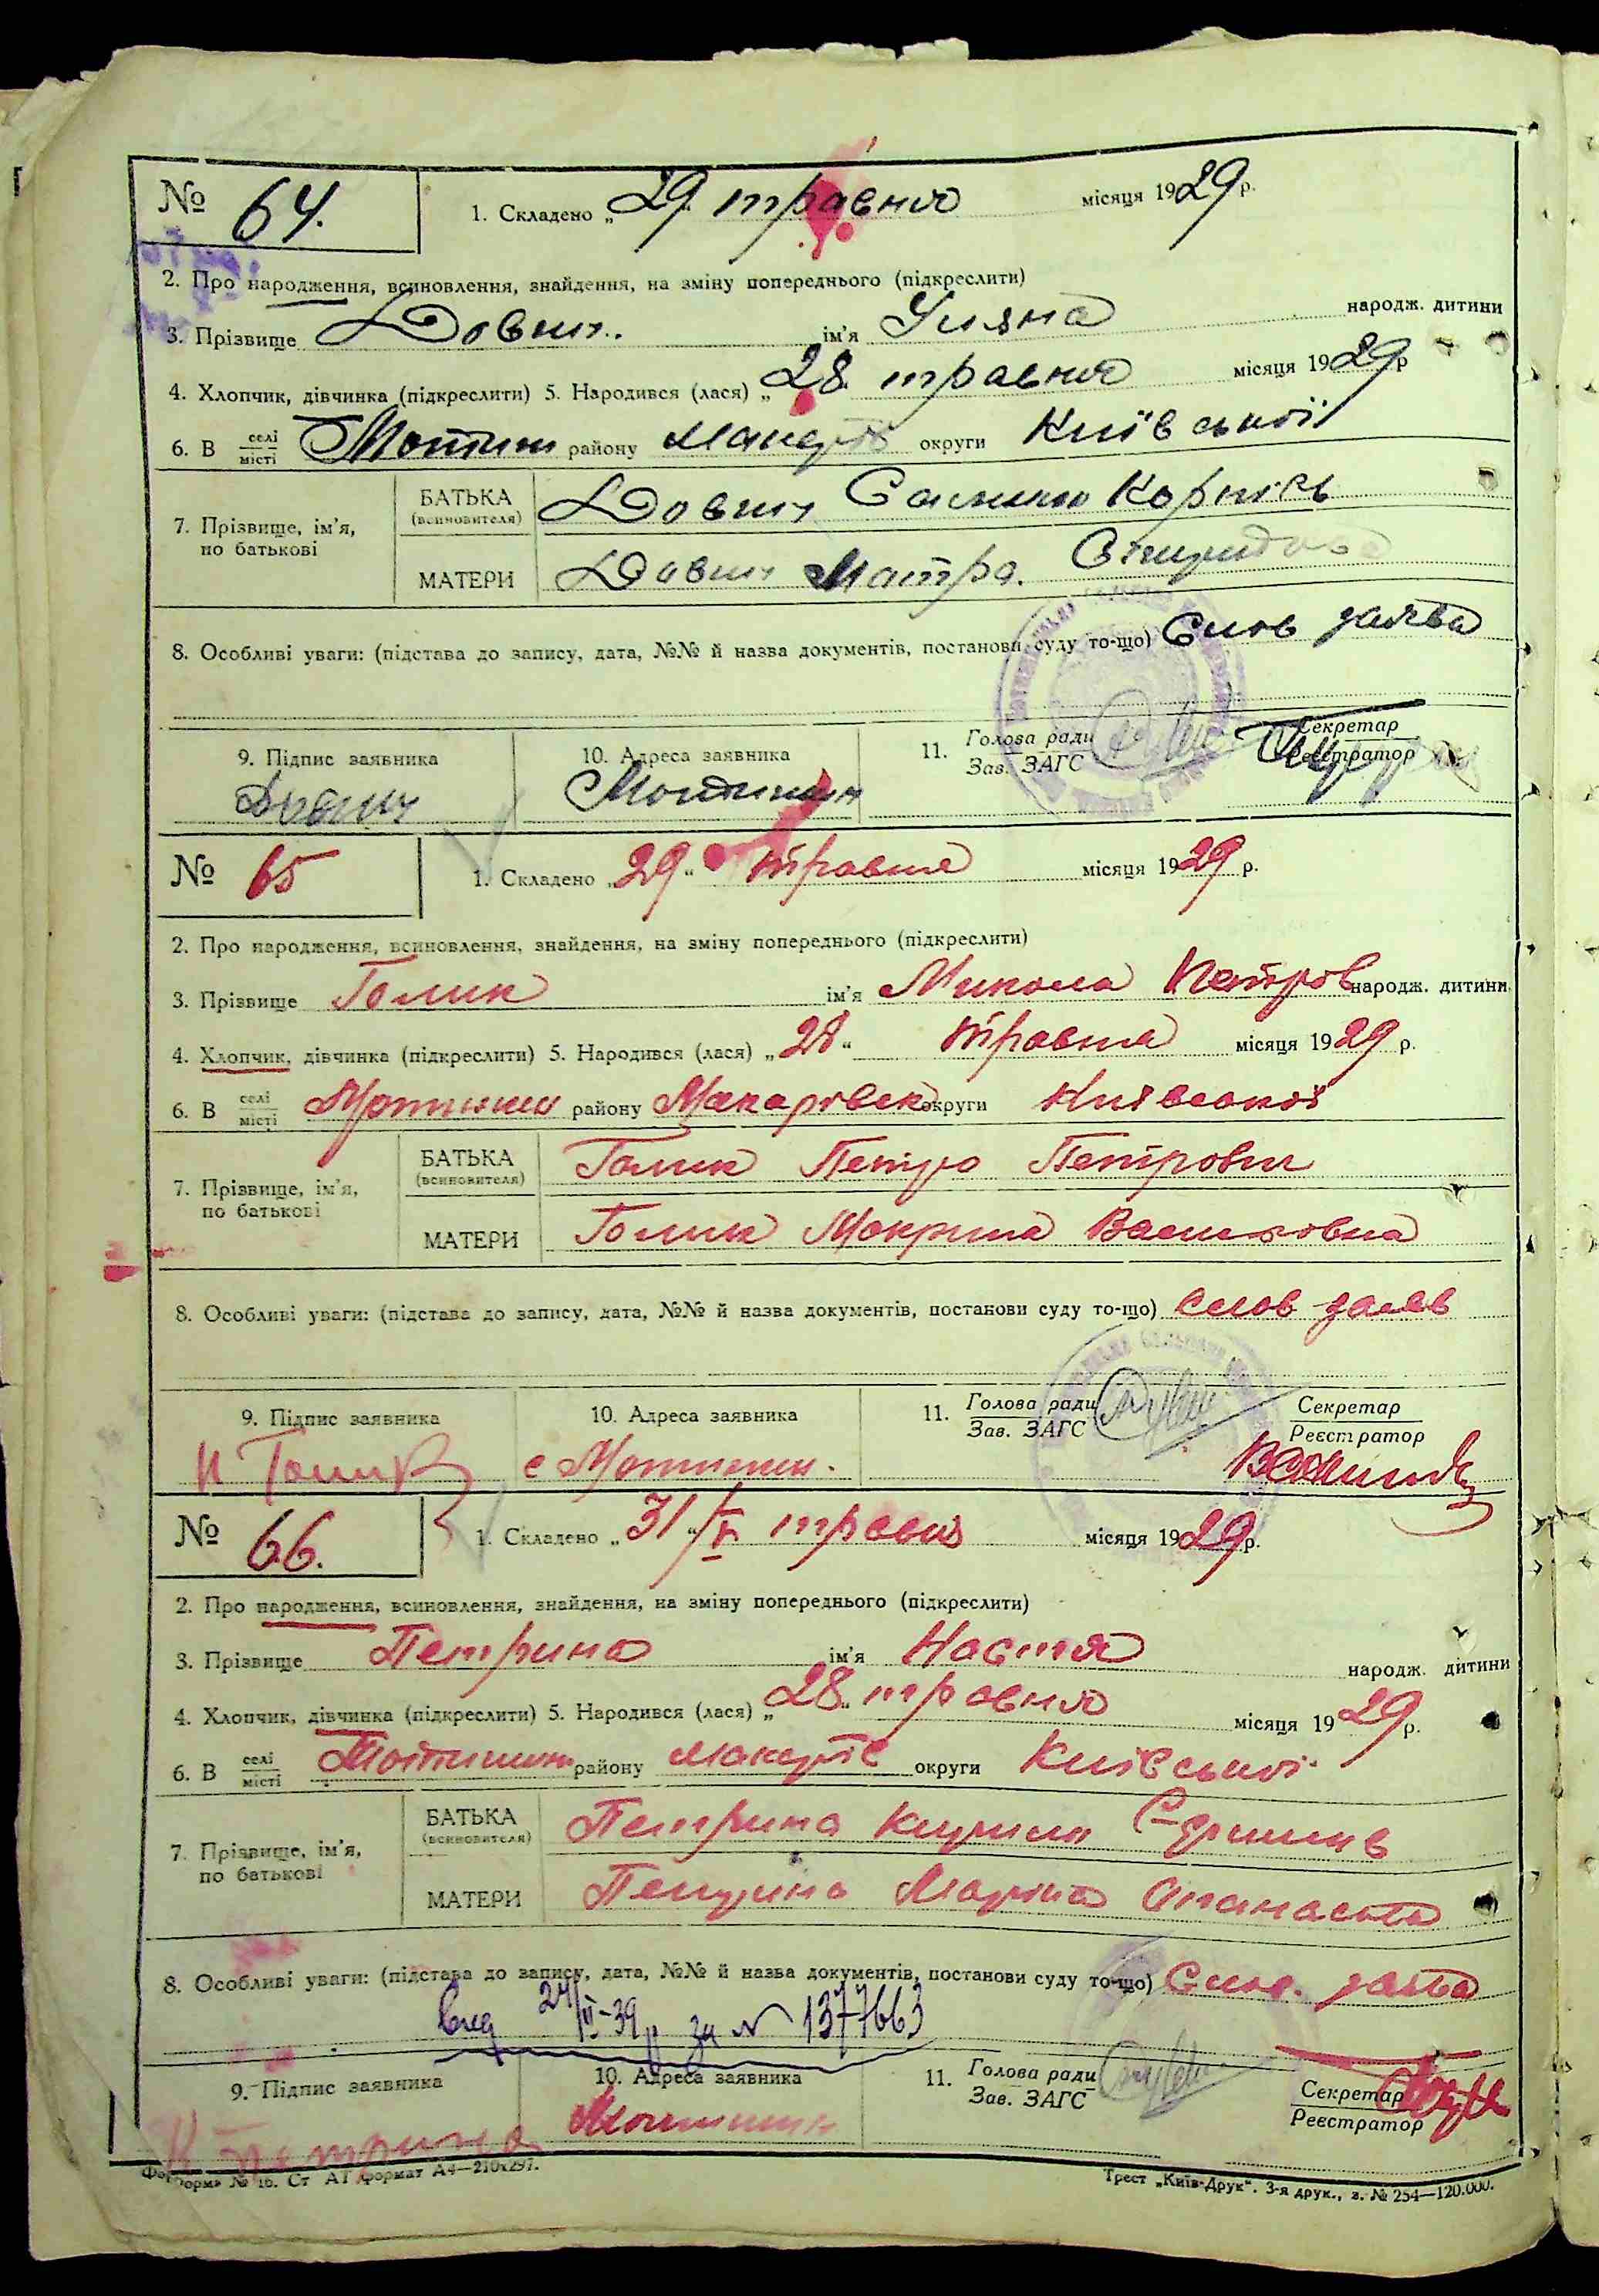 № 64. 1. Складено „29“ травня місяця 1929 р.
2. Про народження, всиновлення, знайдення, на зміну попереднього (підкреслити)
3. Прізвище Довгич. ім'я Уляна народж. дитини
4. Хлопчик, дівчинка (підкреслити) 5. Народився (лася) „28 травня місяця 1929 р
6. В селі місті району округи Київської
7. Прізвище, ім'я, по батькові БАТЬКА (всиновителя) Корнієв
МАТЕРИ
8. Особливі уваги: (підстава до запису, дата, №№ й назва документів, постанови суду то-що) Слов заява
9. Підпис заявника 10. Адреса заявника 11. Голова ради Зав. ЗАГС Секретар Реєстратор
Мотижин
№ 65 1. Складено „29“ травня місяця 1929 р.
2. Про народження, всиновлення, знайдення, на зміну попереднього (підкреслити)
3. Прізвище Голик ім'я Микола Петров народж. дитини
4. Хлопчик, дівчинка (підкреслити) 5. Народився (лася) „28“ травня місяця 1929 р.
6. В селі місті Мотижин району Макарівськ округи Київської
7. Прізвище, ім'я, по батькові БАТЬКА (всиновителя) Голик Петро Петрович
МАТЕРИ Голик Мокрина Василовна
8. Особливі уваги: (підстава до запису, дата, №№ й назва документів, постанови суду то-що) слов заяв
9. Підпис заявника 10. Адреса заявника 11. Голова ради Зав. ЗАГС Секретар Реєстратор
с Мотижин.
№ 66. 1. Складено „31“/V травня місяця 1929 р.
2. Про народження, всиновлення, знайдення, на зміну попереднього (підкреслити)
3. Прізвище Петрина ім'я Настя народж. дитини
4. Хлопчик, дівчинка (підкреслити) 5. Народився (лася) „28“ травня місяця 1929 р.
6. В селі місті Мотижин району округи Київської
7. Прізвище, ім'я, по батькові БАТЬКА (всиновителя) Петрина Кирило
МАТЕРИ Петрина Марина Опанасова
8. Особливі уваги: (підстава до запису, дата, №№ й назва документів, постанови суду то-що) Слов. заява
24/II-39 р за № 1377663
9. Підпис заявника 10. Адреса заявника 11. Голова ради Зав. ЗАГС Секретар Реєстратор
К Петрина Мотижин
Форма № 16. Ст АТ формат А4—210х297. Трест „Київ-Друк“. 3-я друк., з. № 254—120.000.